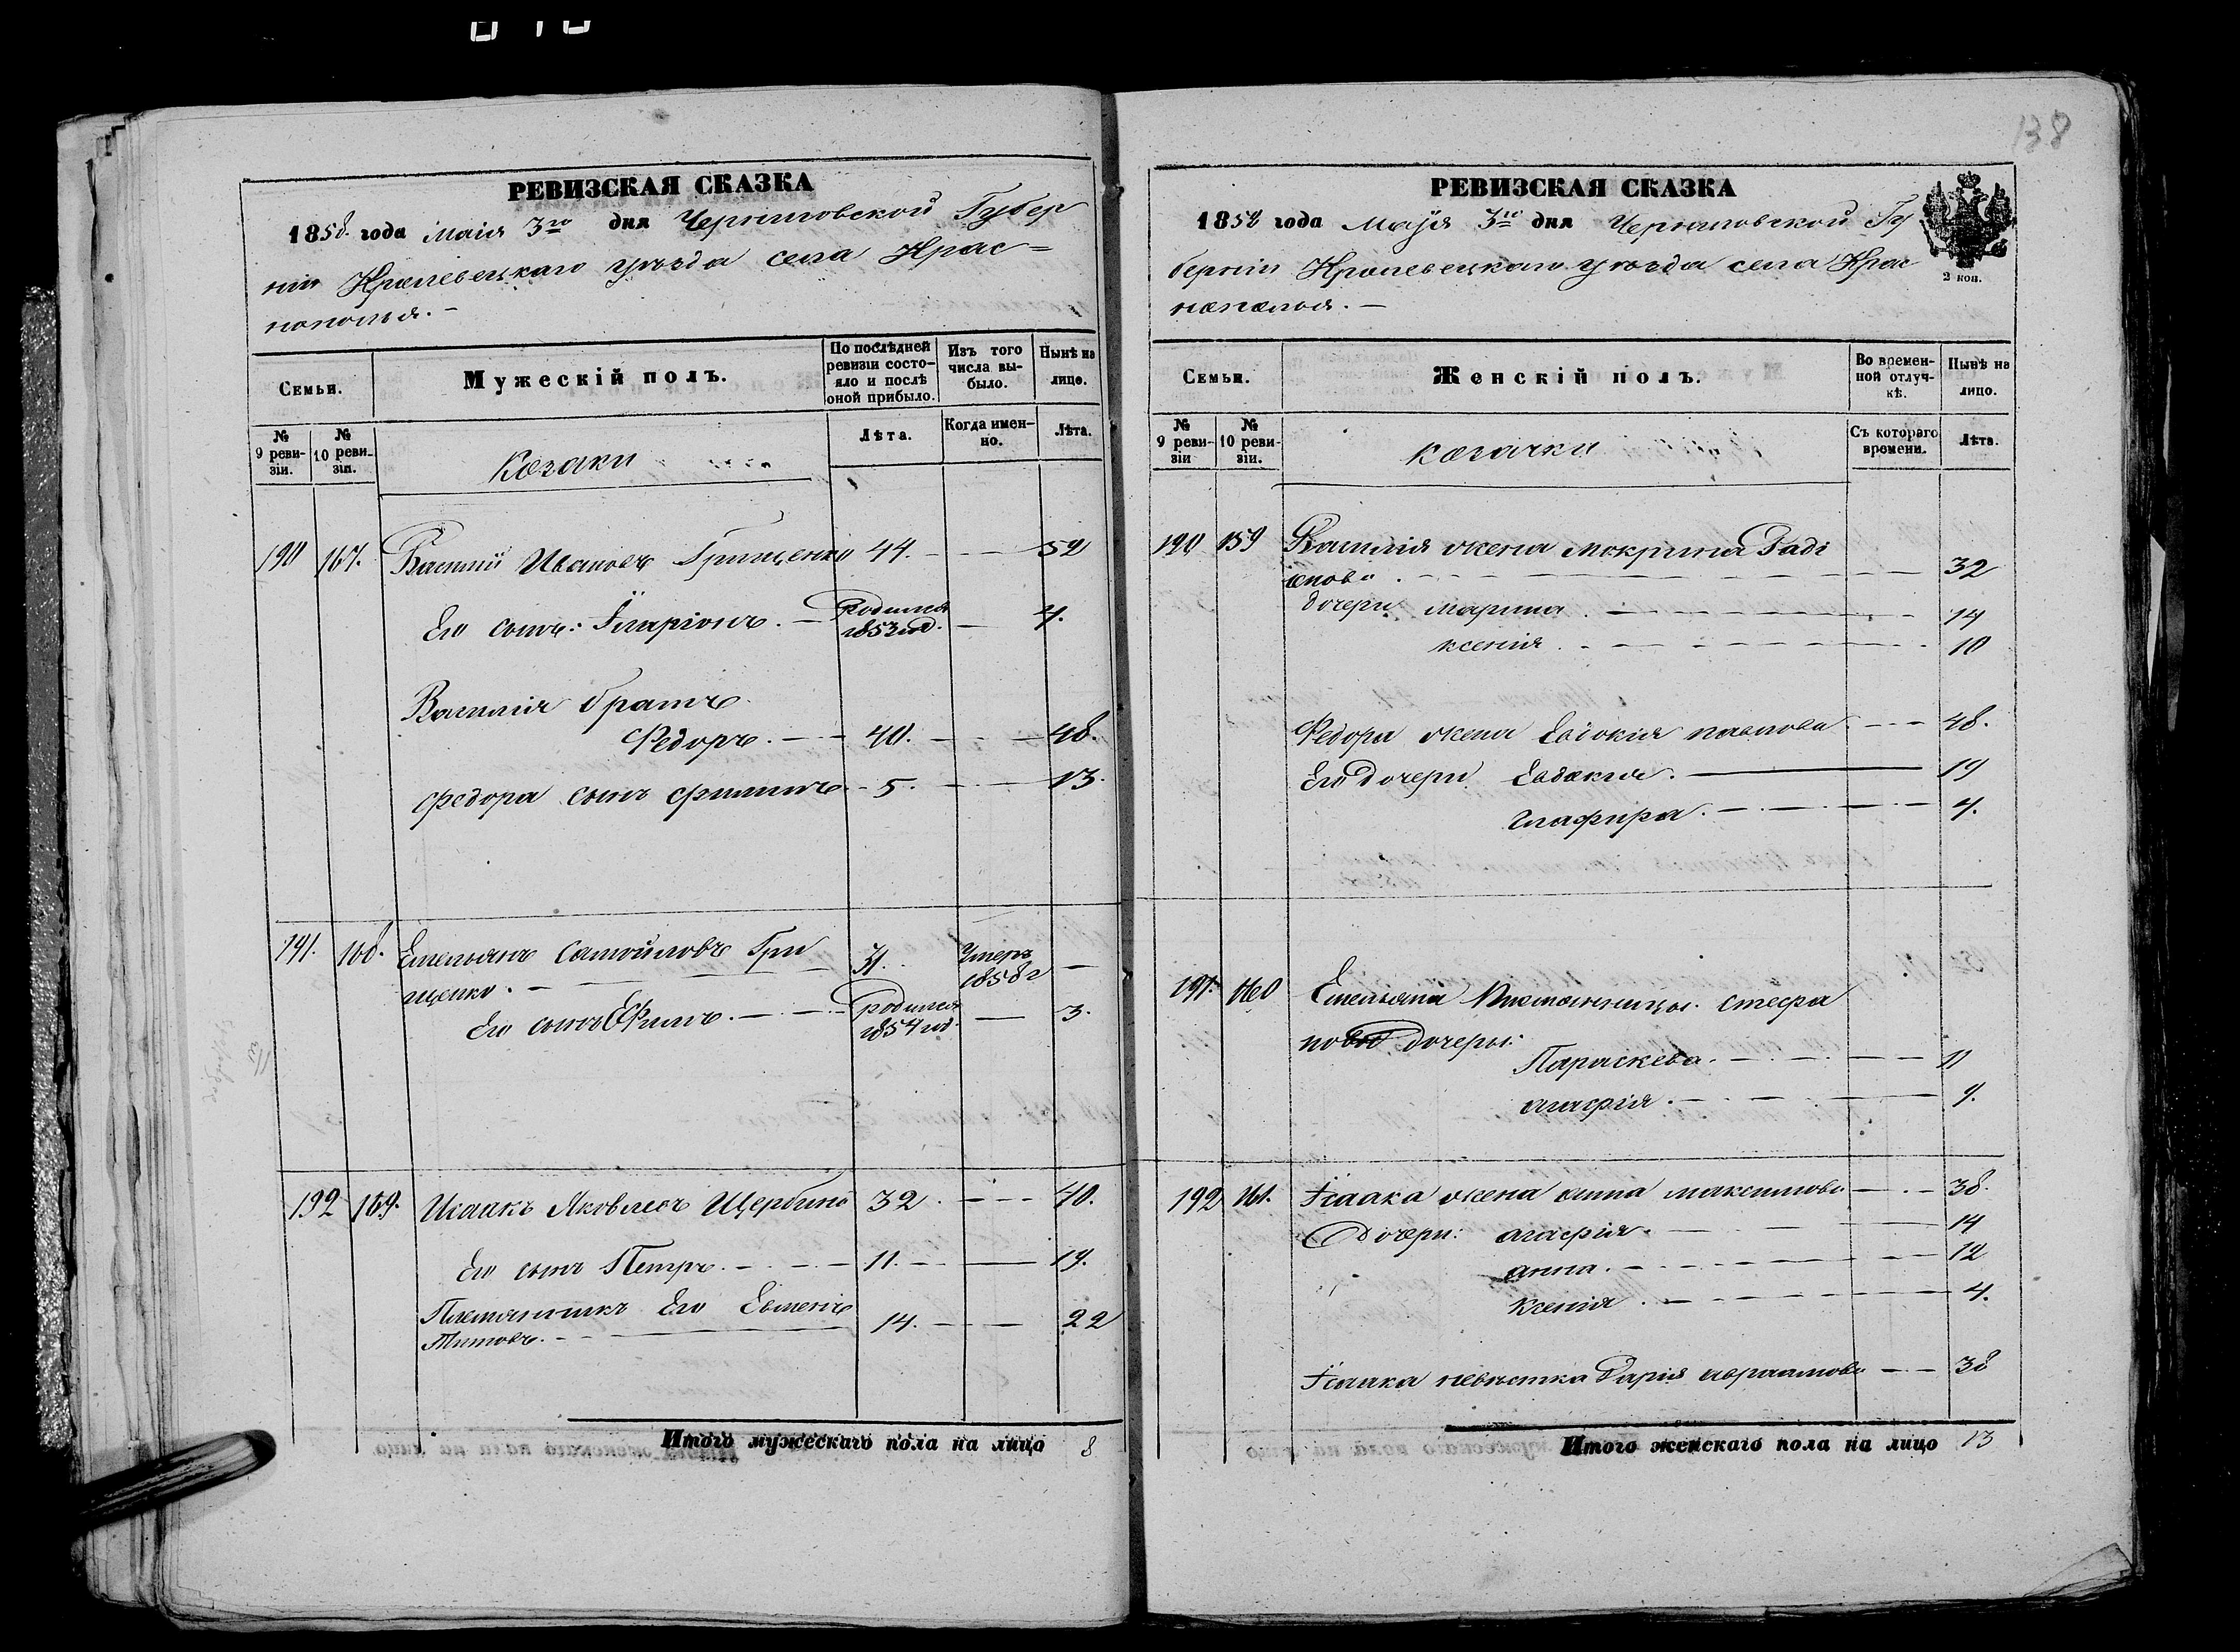 138
РЕВИЗСКАЯ СКАЗКА
1858 года маія 3го дня Черниговской Губер
ніи Кролевецкаго уѣзда села Крас=
нополья.
Семьи.
Мужескій полъ.
По послѣдней ревизіи состояло и послѣ оной прибыло.
Изъ того числа выбыло.
Нынѣ на лице.
№ 9 ревизіи.
№ 10 ревизіи.
Козаки
Лѣта.
Когда именно.
Лѣта.
190 167. Василій Ивановъ Грищенко 44. 52
Его сынъ: Іларіонъ. родился 1853 год. 4.
Василія братъ
Федоръ. 40. 48.
Федора сынъ Филипъ 5. 13.
191. 168. Емельянъ Самойловъ Гри 31. Умеръ 1858 г
щенко.
Его сынъ Ефимъ. родился 1854 год. 3.
192 169. Исаакъ Яковлевъ Щербина 32. 40.
Его сынъ Петръ. 11. 19.
Племянникъ Его Евменій 14. 22
Титовъ.
Итого мужескаго пола на лицо 8
РЕВИЗСКАЯ СКАЗКА
1858 года Маія 3го дня Черниговской Гу
берніи Кролевецкаго уѣзда села Крас
нополья.
2 коп.
Семьи.
Женскій полъ.
Во временной отлучкѣ.
Нынѣ на лицо.
№ 9 ревизіи
№ 10 ревизіи.
козачки
Съ котораго времени.
Лѣта.
190 159 Василія жена Мокрина Радi
онова. 32
дочери Марина. 14
Ксенія. 10
Федора жена Евдокія павлова 48.
Его дочери Евдокия. 19
Глафира. 4.
191. 160 Емельяна племянницы. Стефа
нова дочеры:
Параскева. 11
агафія. 9.
192 161. Ісаака жена анна максимова 38.
дочери: агафія. 14
анна. 12
Ксенія. 4.
Ісаака невѣстка Дарія авраамова 38
Итого женскаго пола на лицо 13